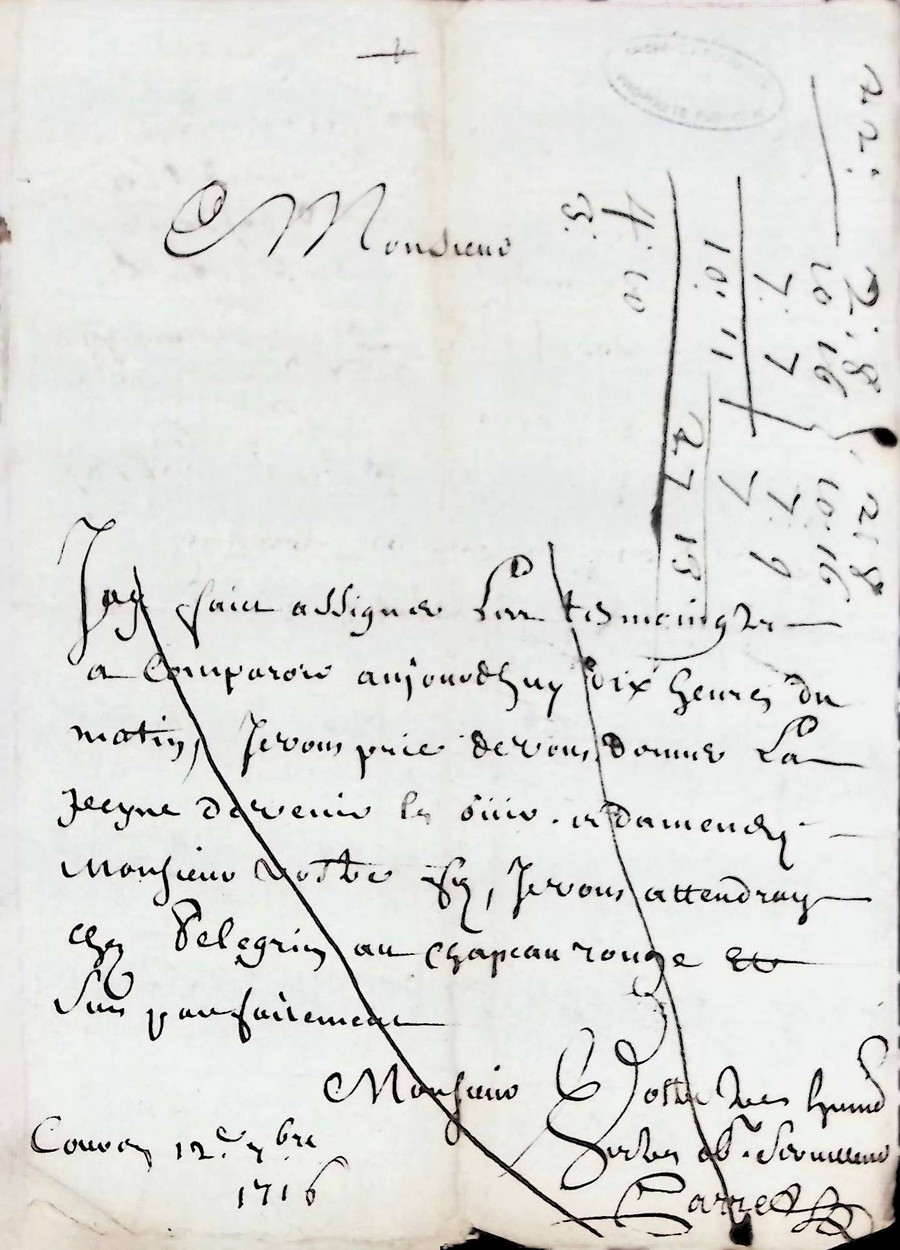 Monsieur
Jay faict assigner Les tesmoingtz
a Comparoir aujourdhuy dix heures du
matin, Je vous prie de vous donner La
peyne de venir les ouir. et damener
Monsieur vostre fis, Je vous attendray
chez Pelegrin au chapeau rouge et
Suis parfaitement
Monsieur Vostre tres humb
et tres ob. Serviteur
Carre
12e 7bre
1716
22
2. 8
10 16
7. 7
10. 11
4. 10
3.
218
10. 16
7. 9
7
27 13
PROPRIETE PUBLIQUE